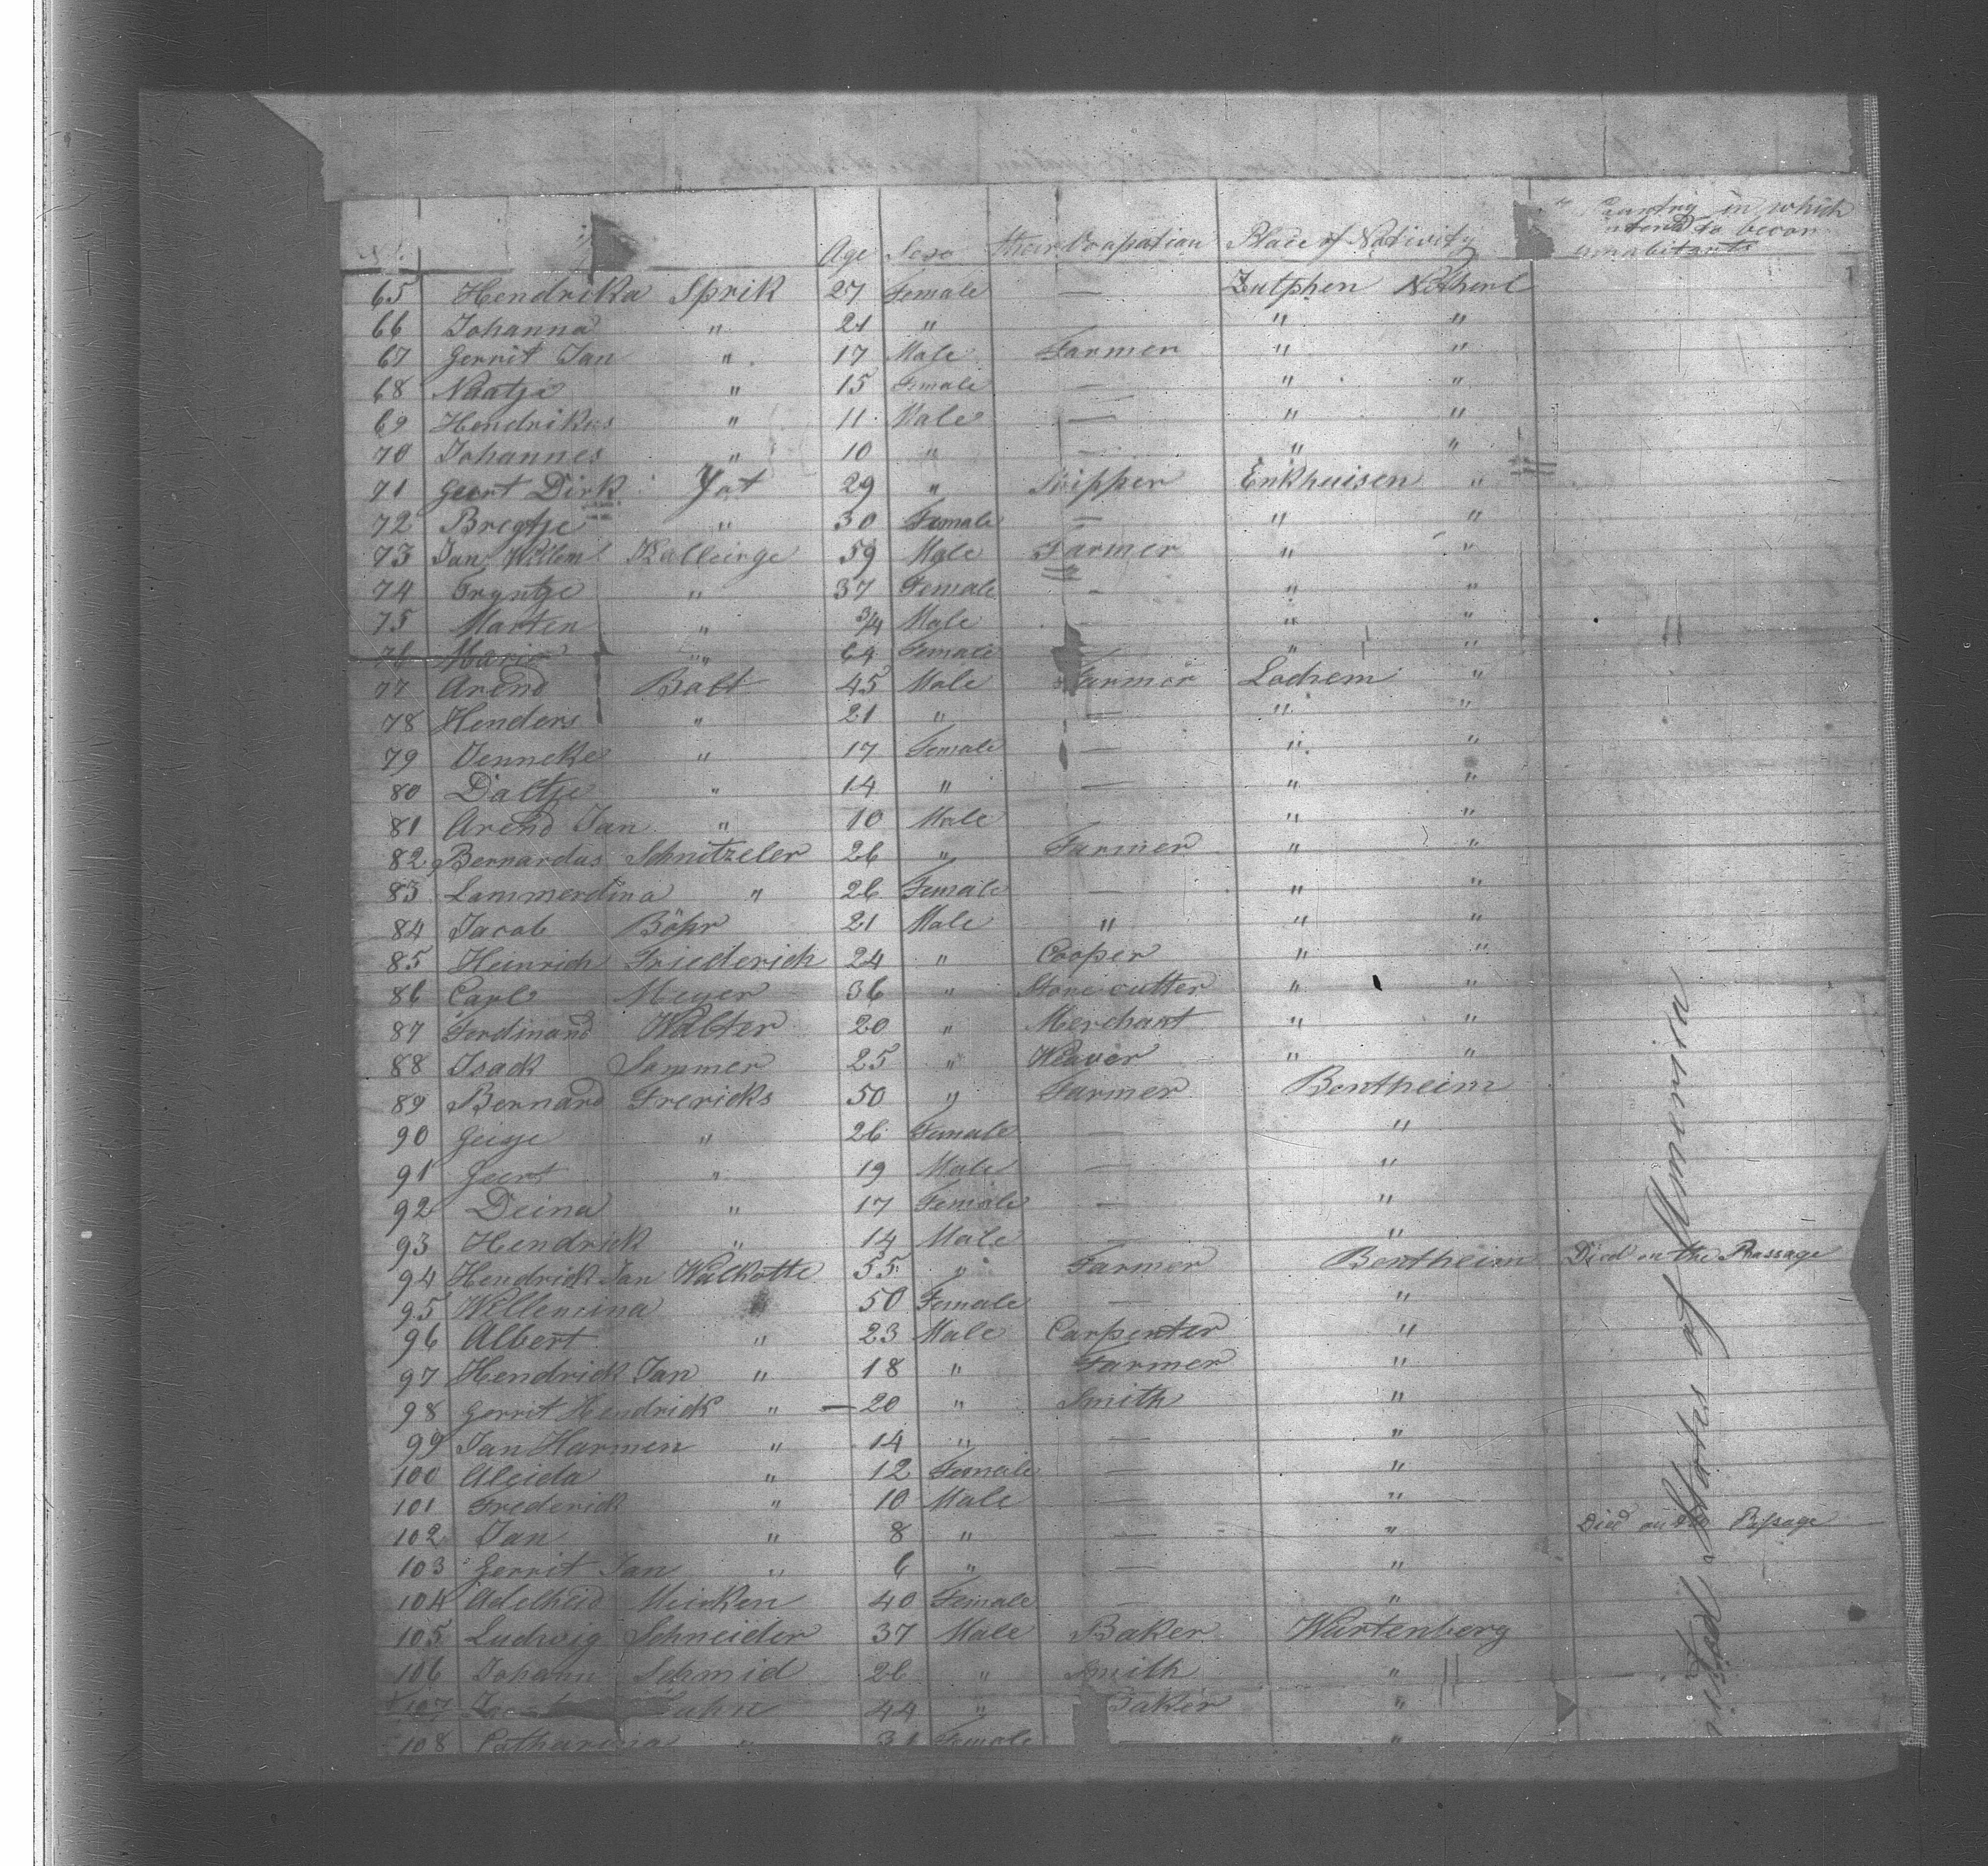 Age Sexe their Occupation Place of Nativity Country in which
intend to becom
inhabitants
65 Hendrika Sprik 27 Female — Zutphen Netherl
66 Johanna " 21 " " "
67 Gerrit Jan " 17 Male Farmer " "
68 Naatje " 15 Female — " "
69 Hendrikus " 11 Male — " "
70 Johannes " 10 " — " "
71 Geert Dirk Yat 29 " Skipper Enkhuisen "
72 Bregtje " 30 Female — " "
73 Jan Willem Kalleirge 59 Male Farmer " "
74 Tryntje " 37 Female - " "
75 Marten " 3/4 Male - " "
76 Maria " 64 Female " "
77 Arend Balt 45 Male Farmer Lochem "
78 Henders " 21 " — " "
79 Jenneke " 17 Female — " "
80 Daltje " 14 " — " "
81 Arend Jan " 10 Male " "
82 Bernardus Schnitzeler 26 " Farmer " "
83 Lammerdina " 26 Female — " "
84 Jacob Böhr 21 Male " " "
85 Heinrich Friederich 24 " Cooper " "
86 Carl Meyer 36 " Stone cutter " "
87 Ferdinand Walter 20 " Merchant " "
88 Isack Sommer 25 " Weaver " "
89 Bernard Frericks 50 " Farmer Bentheim
90 Geisje " 26 Female — "
91 Geert " 19 Male — "
92 Deina " 17 Female — "
93 Hendrick " 14 Male — "
94 Hendrick Jan Walkotte 55 " Farmer Bentheim Died on the Passage
95 Willemina 50 Female — "
96 Albert " 23 Male Carpenter "
97 Hendrick Jan " 18 " Farmer "
98 Gerrit Hendrick " — 20 " Smith "
99 Jan Harmen " 14 " — "
100 Aleida " 12 Female — "
101 Frederick " 10 Male — "
102 Jan " 8 " — " Died on the Passage
103 Gerrit Jan " 6 " — "
104 Adelheid Meirken 40 Female — "
105 Ludwig Schneider 37 Male Baker Wurtenberg
106 Johann Schmid 26 " Smith "
107 44 " Baker "
108 Catharina " 31 Female - "
United States of America